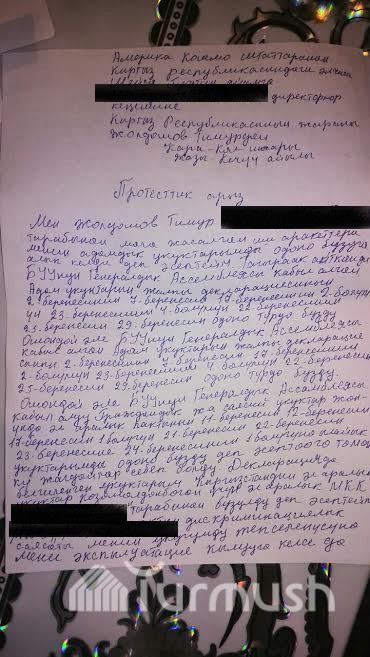 Америка Кошмо Штаттарынын
Кыргыз республикасындагы элчиси
директорлор
кеңешине
Кыргыз Республикасынын жараны
Жолдошов Тимурдан
Кара-Көл шаары
Жазы-Кечүү айылы
Протесттик арыз
Мен Жолдошов Тимур
тарабынан мага жасалган иш аракеттери
менин адамдык укуктарымды одоно бузууга
алып келди деп эсептейм. Тагыраак айтканда
БУУнун Генералдык Ассамблеясы кабыл алган
Адам укуктарын жалпы декларациясынын
2-беренесинин 7-беренесин 17-беренесинин 2-бөлүгүн
23-беренесинин 4-бөлүгүн 22-беренесин
25-беренесин 29-беренесин одоно түрдө бузду.
Ошондой эле БУУнун Генералдык Ассамблеясы
кабыл алган Адам укуктарын жалпы декларация
сынын 2-беренесин 7-беренесин 17-беренесинин
2-бөлүгүн 23-беренесинин 4-бөлүгүн 22-беренесин
25-беренесин 29-беренесин одоно түрдө бузду.
Ошондой эле БУУнун Генералдык Ассамблеясы
кабыл алган Граждандык жа саясий укуктар жөн-
үндө эл аралык пактынын беренесин 12-беренесин
17-беренесин 1-бөлүгүн 21-беренесин 22-беренесин
23-беренесине 24-беренесинин 1-бөлүгүнө ылайык
укуктарымды одоно бузду деп эсептөөгө төмөн
кү жагдайлар себеп болду. Декларацияда
белгиленген укуктарым Кыргызстандын эл аралык
укуктар колдонулбогон эл аралык МКК
тарабынан бузулду деп эсептейм
дискриминациялык
саясаты менин
Мени эксплуатация кылууга келсе да
Turmush